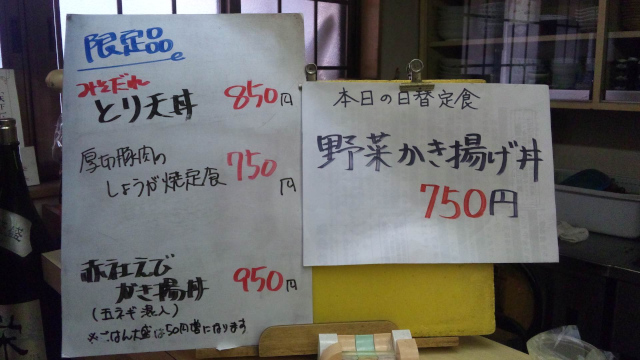 限定品
みそだれ
とり天丼 850円
厚切豚肉の
しょうが焼定食 750円
赤社えび
かき揚丼 950円
(玉ネギ混入)
※ごはん大盛は50円増になります
本日の日替定食
野菜かき揚げ丼
750円